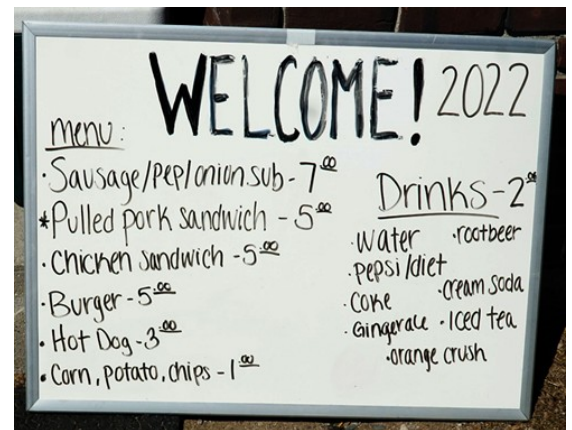 WELCOME! 2022
menu:
·Sausage/pep/onion sub - 7.00
*Pulled pork sandwich - 5.00
·Chicken sandwich - 5.00
·Burger - 5.00
·Hot Dog - 3.00
·Corn, potato, chips - 1.00
Drinks - 2.00
·Water ·rootbeer
·pepsi/diet
·Coke ·cream soda
·Gingerale ·Iced tea
·orange crush